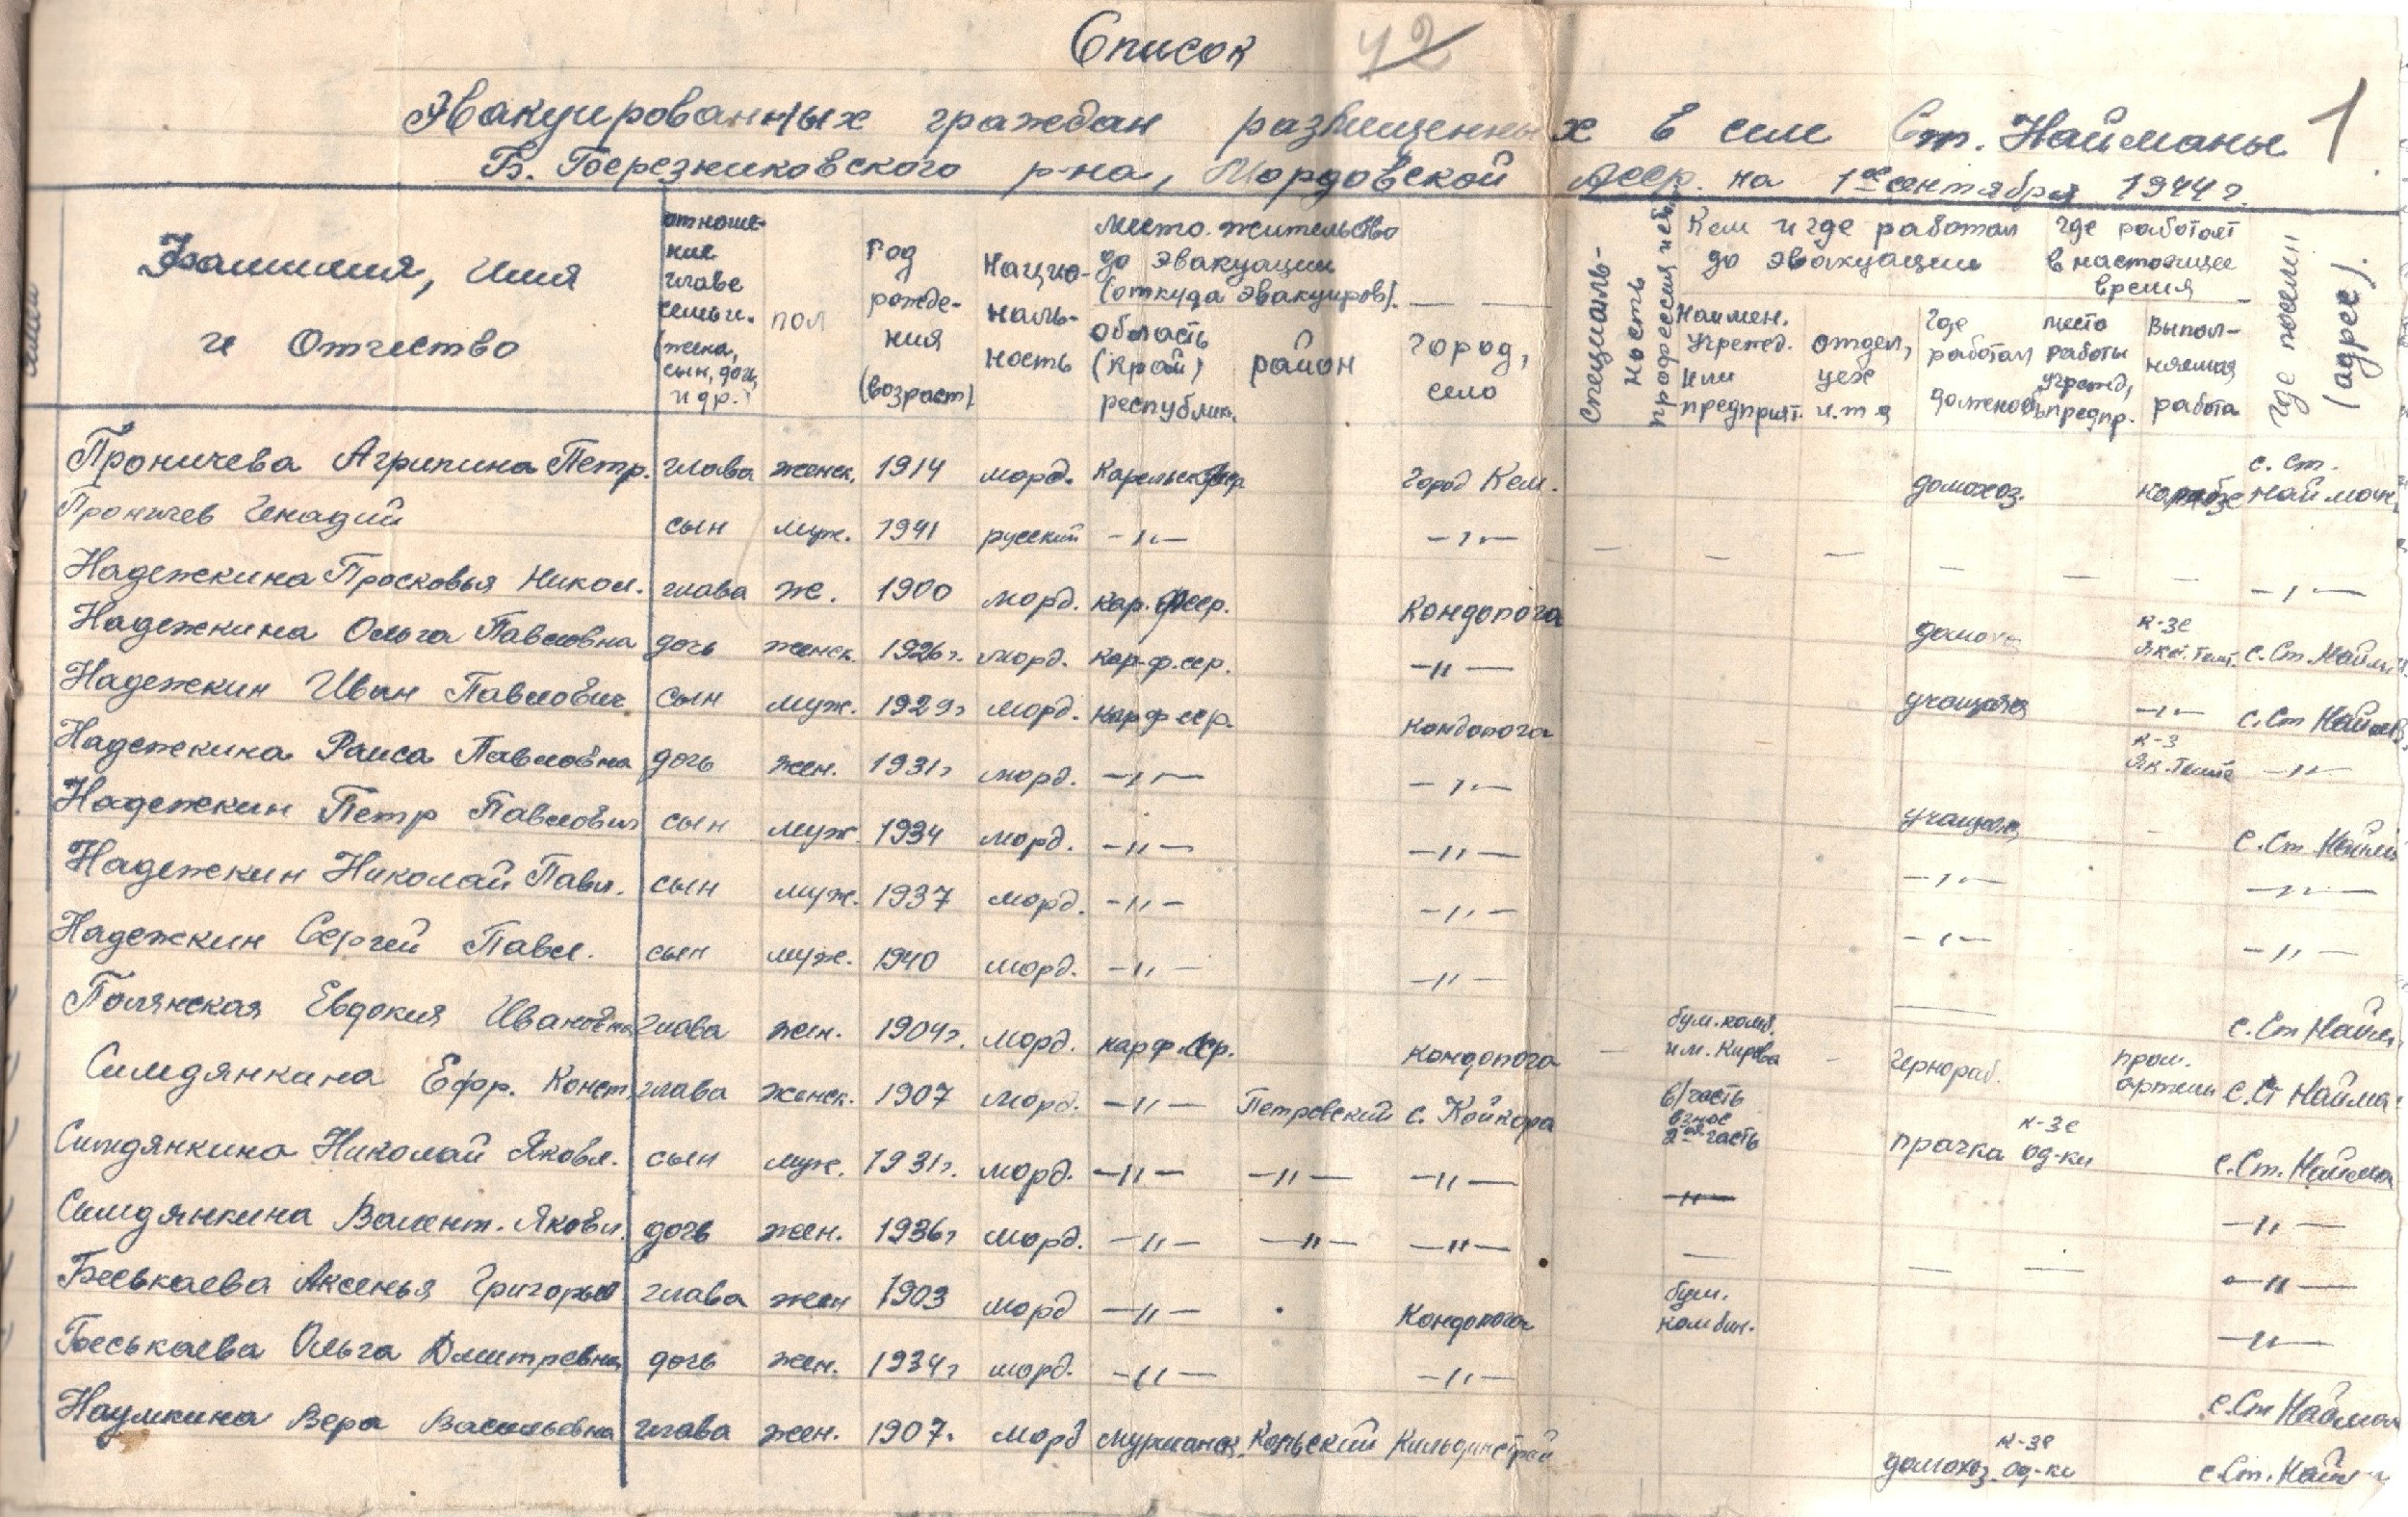 Список 42
Эвакуированных граждан размещенных в селе Ст. Найманы 1
Б. Березниковского р-на, Мордовской АССР. на 1ое сентября 1944 г.
Фамилия, Имя и Отчество
отношение главе семьи. (жена, сын, дочь, и др.)
пол
Год рождения (возраст)
Национальность
место жительства до эвакуации (откуда эвакуиров).
область (край) республик.
район
город, село
Специальность
профессия
Кем и где работал до эвакуации
Наимен. Учрежд. или предприят.
отдел, цех и.т.д
Где работал должность
Где работает в настоящее время
место работы учрежд, предпр.
Выполняемая работа
Где поселили (адрес).
Проничева Агрипина Петр. глава женск. 1914 морд. Карельск. город Кем. домохоз. с. Ст. Найман
Проничев Генадий сын муж. 1941 русский -"- -"- — — — — — — -"-
Надежкина Просковья Никол. глава ж. 1900 морд. Кар.ф.сср. Кондопога домохоз к-зе с. Ст. Найм
Надежкина Ольга Павловна дочь женск. 1926 г. морд. кар.ф.сср. -"- учащаяся -"- с. Ст Найм
Надежкин Иван Павлович сын муж. 1929 г морд. кар ф сср. Кондопога к-з -"-
Надежкина Раиса Павловна дочь жен. 1931 г морд. -"- -"- учащаяся с. Ст Найм
Надежкин Петр Павлович сын муж. 1934 морд. -"- -"- -"- -"-
Надежкин Николай Павл. сын муж. 1937 морд. -"- -"- -"- -"-
Надежкин Сергей Павл. сын муж. 1940 морд. -"- -"- — с. Ст Найм
Полянская Евдокия Ивановна глава жен. 1904 г. морд. кар ф. сср. Кондопога — бум. комб. им. Кирова — чернораб. пром. артель с. Ст Найма
Симдянкина Ефр. Конст. глава женск. 1907 морд. -"- Петровский с. Койкора в/часть 2ая часть прачка к-зе од-ки с. Ст. Найма
Симдянкино Николай Яковл. сын муж. 1931 г. морд. -"- -"- -"- -"- -"-
Симдянкина Валент. Яковл. дочь жен. 1936 г морд. -"- -"- -"- — — — -"-
Беськаева Аксенья Григорье глава жен 1903 морд -"- Кондопога бум. комбин. -"-
Беськаева Ольга Дмитревна дочь жен. 1934 г морд. -"- -"- с. Ст Найман
Наумкина Вера Васильевна глава жен. 1907. морд мурманск. Кольский Кильдинстрой домохоз. к-зе од-ки с. Ст. Найм